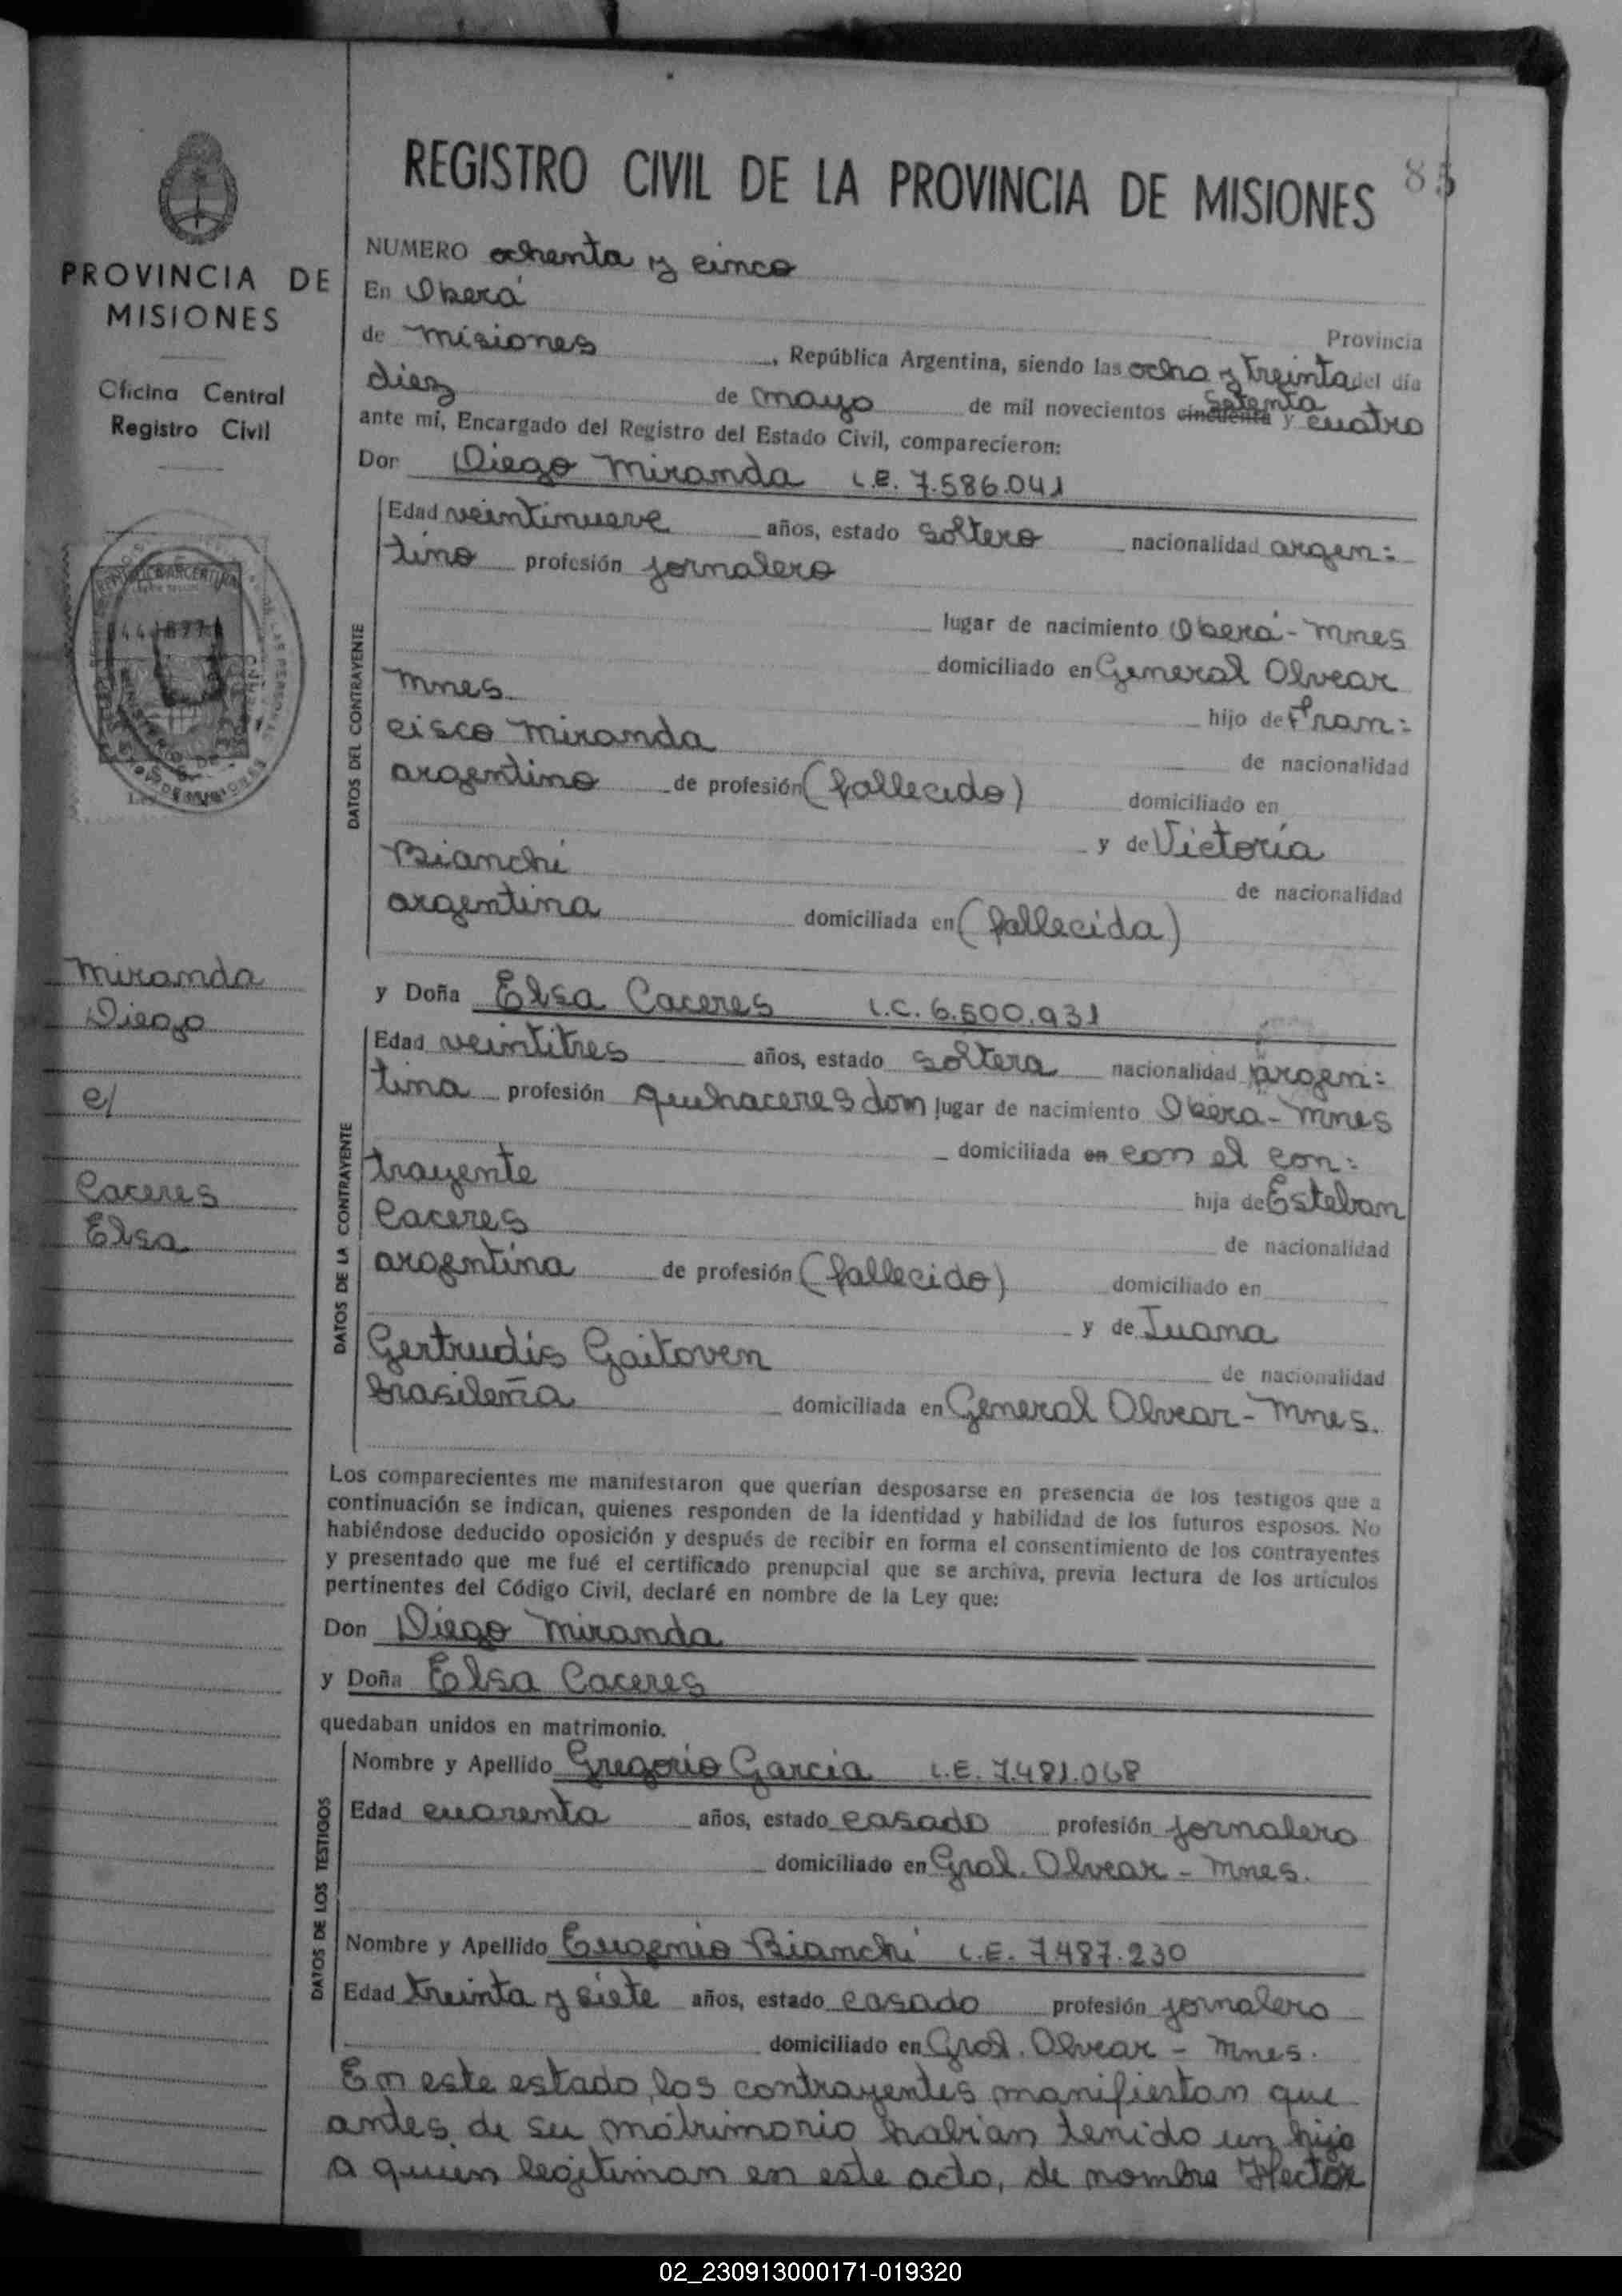 85
REGISTRO CIVIL DE LA PROVINCIA DE MISIONES
PROVINCIA DE
MISIONES
Oficina Central
Registro Civil
Miranda
Diego
c/
Caceres
Elsa
NUMERO ochenta y cinco
En Oberá
Provincia
de Misiones, República Argentina, siendo las ocho y treinta del día
diez de mayo de mil novecientos cincuenta setenta y cuatro
ante mí, Encargado del Registro del Estado Civil, comparecieron:
Don Diego Miranda L.E. 7.586.041
DATOS DEL CONTRAYENTE
Edad veintinueve años, estado soltero nacionalidad argen=
tino profesión jornalero
lugar de nacimiento Oberá - Mnes
domiciliado en General Alvear
Mnes.
hijo de Fran=
cisco Miranda
de nacionalidad
argentino de profesión (fallecido) domiciliado en
y de Victoria
Bianchi
de nacionalidad
argentina domiciliada en (fallecida)
y Doña Elsa Caceres L.C. 6.500.931
DATOS DE LA CONTRAYENTE
Edad veintitres años, estado soltera nacionalidad argen=
tina profesión quehaceres dom lugar de nacimiento Oberá - Mnes
domiciliada en con el con=
trayente
hija de Esteban
Caceres
de nacionalidad
argentina de profesión (fallecido) domiciliado en
y de Juana
Gertrudis Gaitoven
de nacionalidad
brasileña domiciliada en General Alvear - Mnes.
Los comparecientes me manifestaron que querían desposarse en presencia de los testigos que a
continuación se indican, quienes responden de la identidad y habilidad de los futuros esposos. No
habiéndose deducido oposición y después de recibir en forma el consentimiento de los contrayentes
y presentado que me fué el certificado prenupcial que se archiva, previa lectura de los artículos
pertinentes del Código Civil, declaré en nombre de la Ley que:
Don Diego Miranda
y Doña Elsa Caceres
quedaban unidos en matrimonio.
DATOS DE LOS TESTIGOS
Nombre y Apellido Gregorio Garcia L.E. 7.481.068
Edad cuarenta años, estado casado profesión jornalero
domiciliado en Gral. Alvear - Mnes.
Nombre y Apellido Eugenio Bianchi L.E. 7.487.230
Edad treinta y siete años, estado casado profesión jornalero
domiciliado en Gral. Alvear - Mnes.
En este estado, los contrayentes manifiestan que
antes de su matrimonio habian tenido un hijo
a quien legitiman en este acto, de nombre Hector
02_230913000171-019320